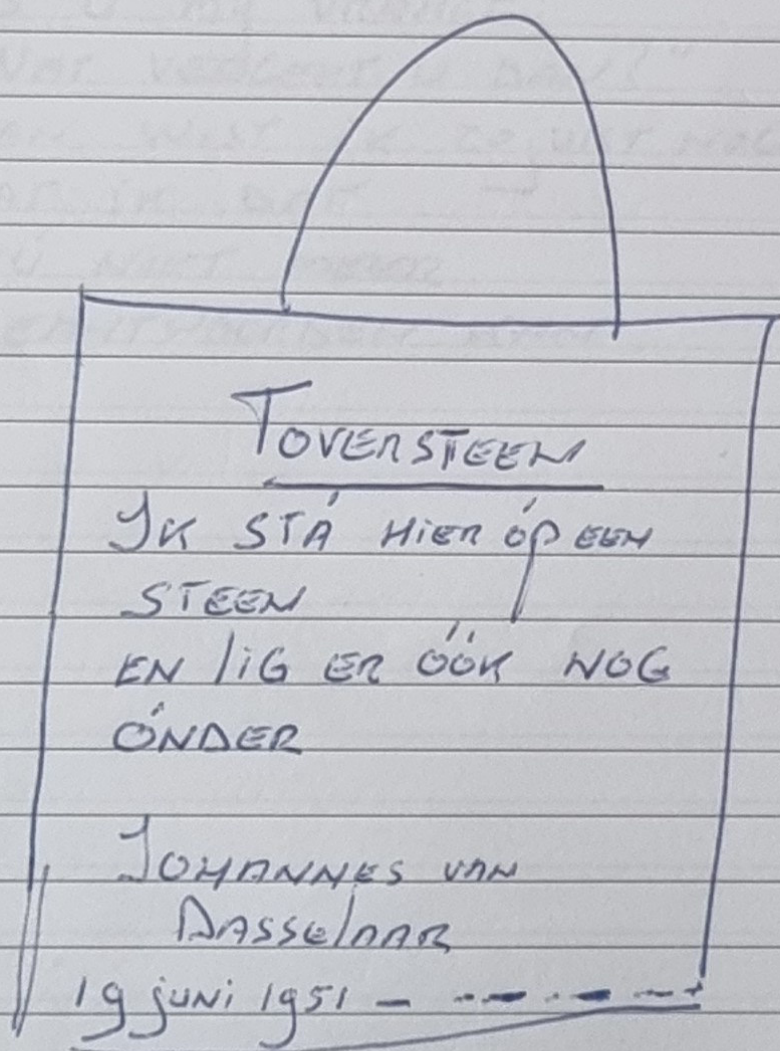 Toversteen
Ik stá hier óp een
steen
en lig er óók nog
ónder
Johannes van
Dasselaar
19 juni 1951 – – – · – – ·